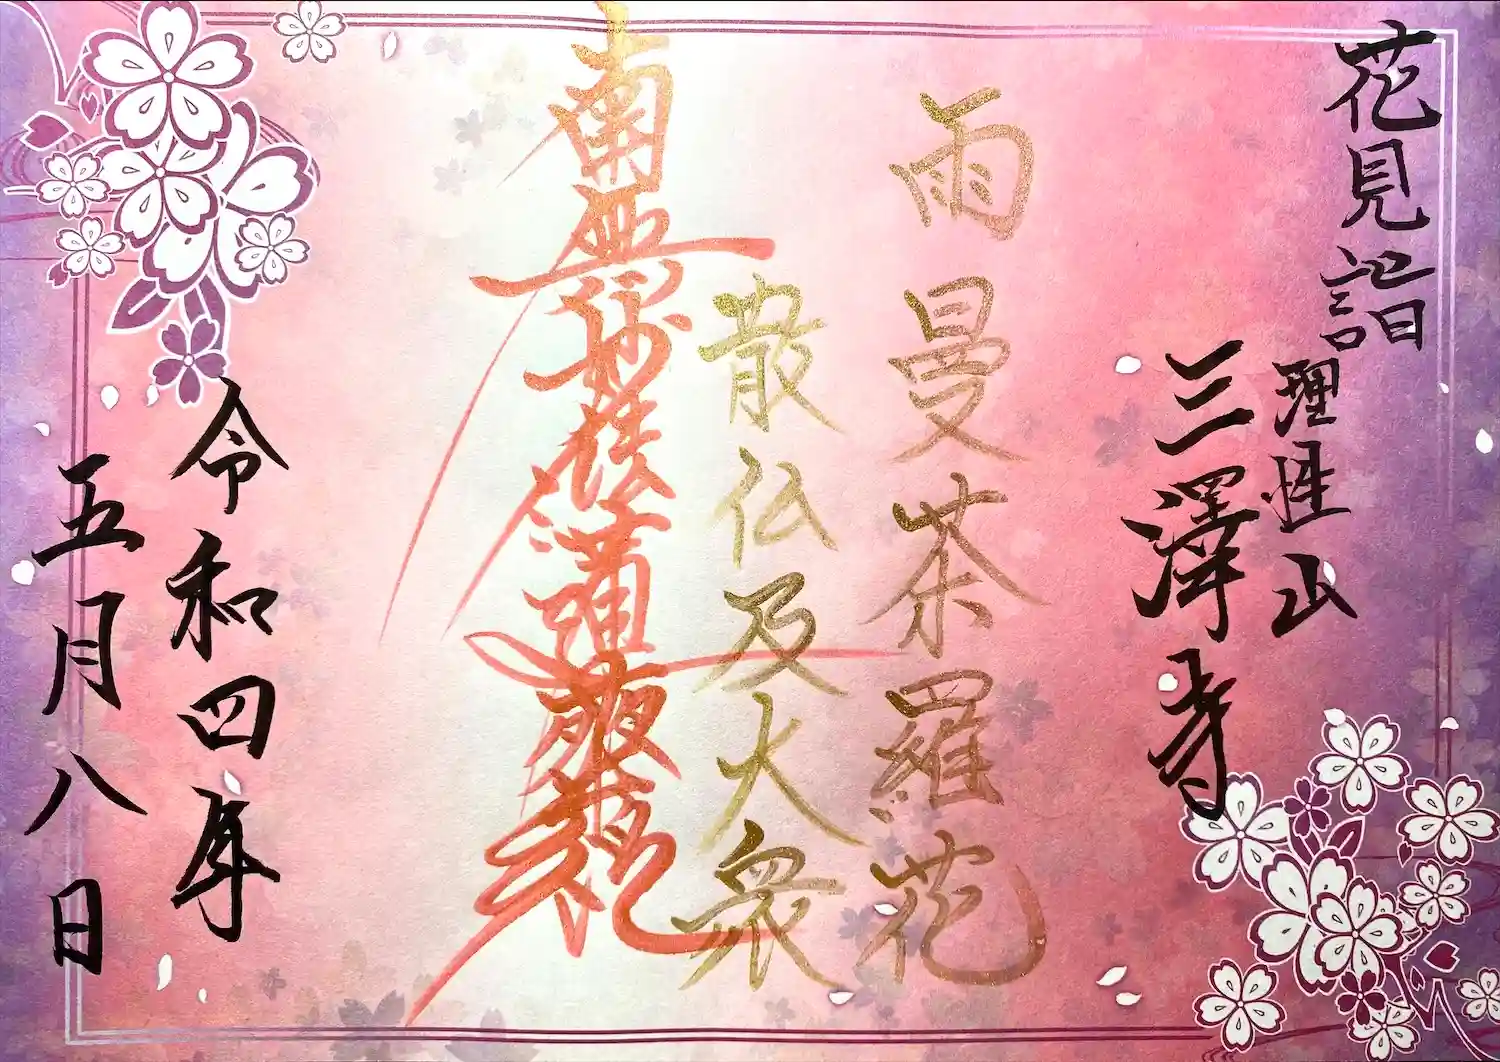 花見詣
理性山
三澤寺
雨曼茶羅花
散仏及大衆
南無妙法蓮華経
令和四年
五月八日